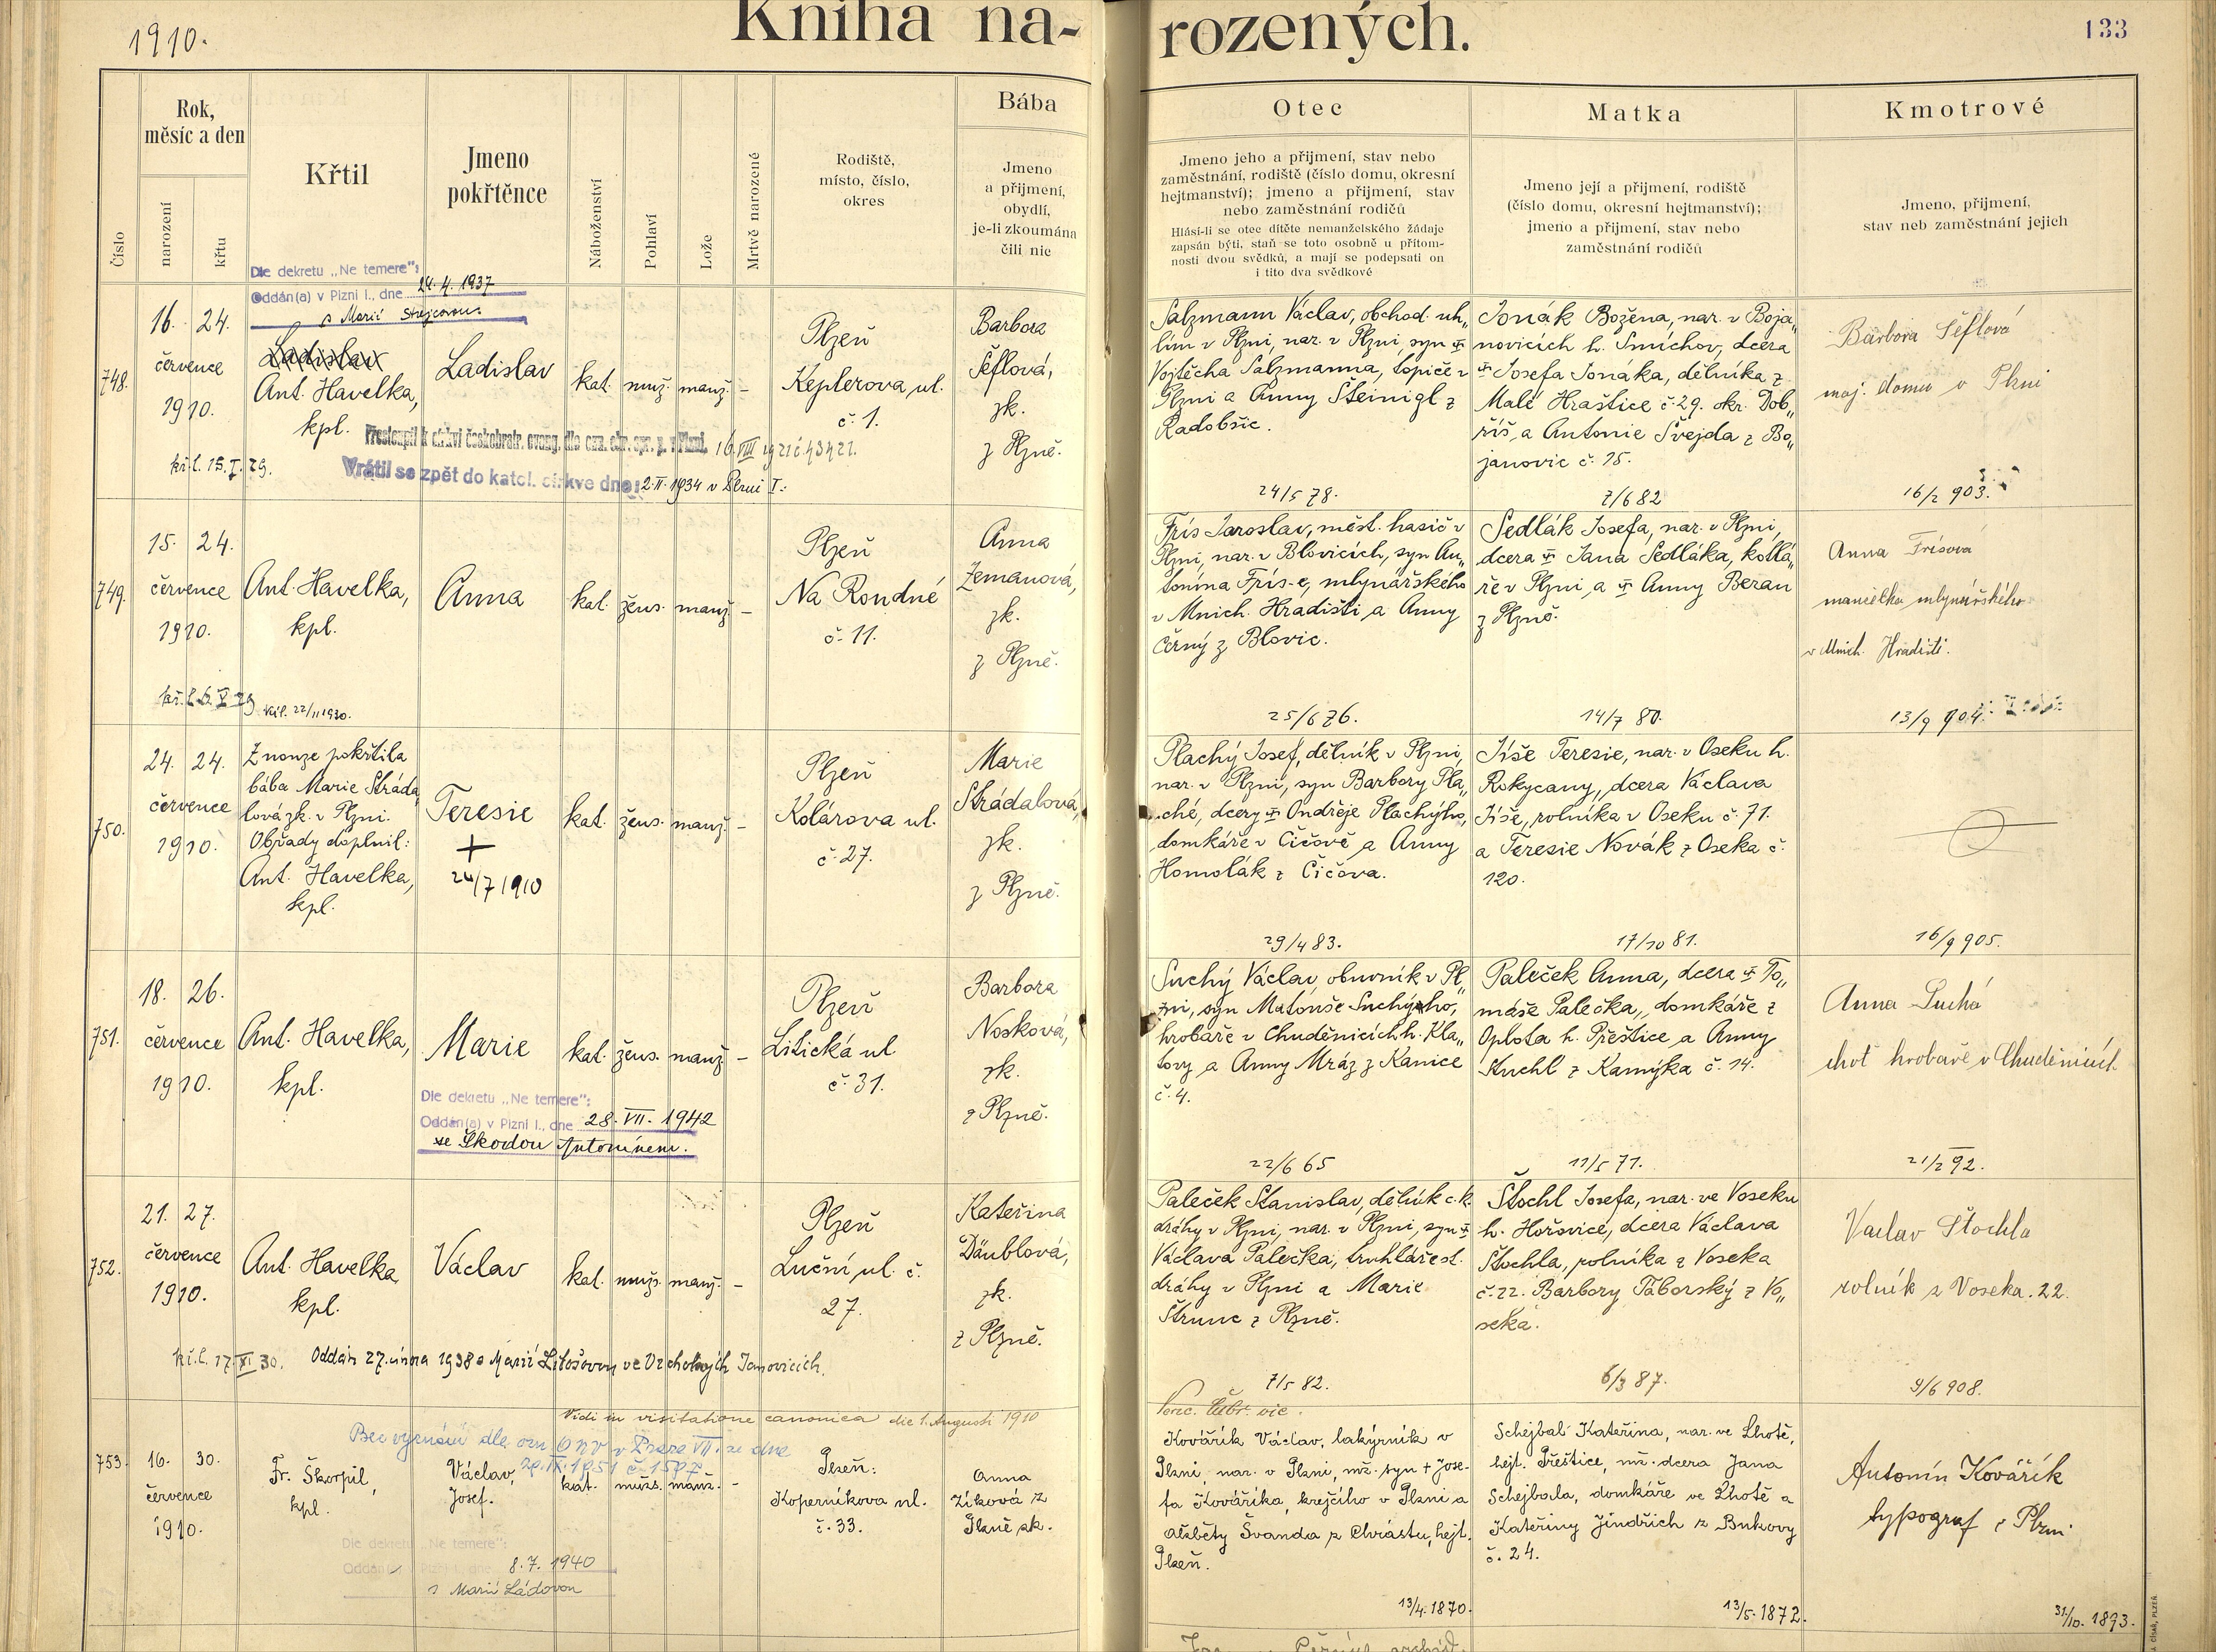 1910.
Kniha na-
rozených.
133
Číslo
Rok,
měsíc a den
narození
křtu
Křtil
Jmeno
pokřtěnce
Náboženství
Pohlaví
Lože
Mrtvě narozené
Rodiště,
místo, číslo,
okres
Bába
Jmeno
a přijmení,
obydlí,
je-li zkoumána
čili nic
Otec
Jmeno jeho a přijmení, stav nebo
zaměstnání, rodiště (číslo domu, okresní
hejtmanství); jmeno a přijmení, stav
nebo zaměstnání rodičů
Hlásí-li se otec dítěte nemanželského žádaje
zapsán býti, staň se toto osobně u přítom-
nosti dvou svědků, a mají se podepsati on
i tito dva svědkové
Matka
Jmeno její a přijmení, rodiště
(číslo domu, okresní hejtmanství);
jmeno a přijmení, stav nebo
zaměstnání rodičů
Kmotrové
Jmeno, přijmení,
stav neb zaměstnání jejich
Dle dekretu „Ne temere":
Oddán(a) v Plzni I., dne 24. 4. 1937
s Marií
748.
16. 24.
července
1910.
Ladislav
Ant. Havelka,
kpl.
Ladislav
kat.
muž.
manž.
-
Plzeň
Keplerova ul.
č. 1.
Barbora
Šéflová,
zk.
z Plzně.
kř. l. 15. I. 29.
Přestoupil k církvi českobratr. evang. 16. VIII 1921 č 43421.
Vrátil se zpět do katol. církve dne: 2. II. 1934 v Plzni I.:
Salzmann Václav, obchod. uh„
lím v Plzni, nar. v Plzni, syn
Vojtěcha Salzmanna, topiče v
Plzni a Anny Šteinigl z
Radobšic.
24/5 78.
Jonák Božena, nar. v Boja„
novicích h. Smíchov, dcera
Josefa Jonáka, dělníka z
Malé Hraštice č. 29. okr. Dob„
říš, a Antonie Švejda z Bo„
janovic č. 15.
7/6 82
Barbora Šéflová
maj. domu v Plzni
16/2 903.
749.
15. 24.
července
1910.
Ant. Havelka,
kpl.
Anna
kat.
žens.
manž.
-
Plzeň
Na Rondné
č. 11.
Anna
Zemanová,
zk.
z Plzně.
22/11 1930.
Frís Jaroslav, měst. hasič v
Plzni, nar. v Blovicích, syn An„
tonína Frís-e, mlynářského
v Mnich. Hradišti a Anny
Černý z Blovic.
25/6 76.
Sedlák Josefa, nar. v Plzni,
dcera Jana Sedláka, kotlá„
ře v Plzni a Anny Beran
z Plzně.
14/7 80.
Anna Frísova
manželka mlynářského
v Mnich. Hradišti.
13/9 904.
750.
24. 24.
července
1910.
Z nouze pokřtila
bába Marie Stráda„
lová zk. v Plzni.
Obřady doplnil:
Ant. Havelka,
kpl.
Teresie
+
24/7 1910
kat.
žens.
manž.
-
Plzeň
Kolárova ul.
č. 27.
Marie
Strádalová,
zk.
z Plzně.
Plachý Josef, dělník v Plzni,
nar. v Plzni, syn Barbory Pla„
ché, dcery Ondřeje Plachýho,
domkáře v Čičově a Anny
Homolák z Čičova.
29/4 83.
Jíše Teresie, nar. v Oseku h.
Rokycany, dcera Václava
Jíše, rolníka v Oseku č. 71.
a Teresie Novák z Oseka č.
120.
17/10 81.
16/9 905.
751.
18. 26.
července
1910.
Ant. Havelka,
kpl.
Marie
kat.
žens.
manž.
-
Plzeň
Litická ul.
č. 31.
Barbora
Nosková,
zk.
z Plzně.
Dle dekretu „Ne temere":
Oddán(a) v Plzni I., dne 28. VII. 1942
se Škodou Antonínem.
Suchý Václav, obuvník v Pl„
zni, syn Matouše Suchýho,
hrobaře v Chuděnicích h. Kla„
tovy a Anny Mráz z Kanice
č. 4.
22/6 65
Paleček Anna, dcera To„
máše Palečka, domkáře z
Oplota h. Přeštice a Anny
Kuchl z Kamýka č. 14.
11/5 71.
Anna Suchá
choť hrobaře v Chuděnicích.
21/2 92.
752.
21. 27.
července
1910.
Ant. Havelka
kpl.
Václav
kat.
mužs.
manž.
-
Plzeň
Luční ul. č.
27.
Kateřina
Däublová,
zk.
z Plzně.
kř. l. 17. XI 30. Oddán 27. února 1938 s Marií Litošovou ve Vrchotových Janovicích.
Paleček Stanislav, dělník c. k.
dráhy v Plzni, nar. v Plzni, syn
Václava Palečka, truhláře st.
dráhy v Plzni a Marie
Štrunc z Plzně.
7/5 82.
Štochl Josefa, nar. ve Voseku
h. Hořovice, dcera Václava
Štochla, rolníka z Voseka
č. 22. Barbory Táborský z Vo„
seka.
6/3 87.
Vaclav Štochla
rolník z Voseka. 22.
9/6 908.
Vidi in visitatione canonica die 1. Augusti 1910
vic.
Bez vyznání dle ozn. ONV v Praze VII. ze dne
753.
16. 30.
července
1910.
Fr. Škorpil,
kpl.
Václav,
Josef.
kat.
mužs.
manž.
-
Plzeň:
Koperníkova ul.
č. 33.
Anna
Zíková z
Plzně zk.
Dle dekretu „Ne temere":
Oddán v Plzni I., dne 8. 7. 1940
s Marií Ládovou
Kovářík Václav, lakýrník v
Plzni, nar. v Plzni, mž. syn + Jose-
fa Kováříka, krejčího v Plzni a
Alžběty Švanda z Chrástu, hejt.
Plzeň.
13/4. 1870.
Schejbal Kateřina, nar. ve Lhotě,
hejt. Přeštice, mž. dcera Jana
Schejbala, domkáře ve Lhotě a
Kateřiny Jindřich z Bukovy
č. 24.
13/5. 1872.
Antonín Kovářík
typograf v Plzni.
31/10. 1893.